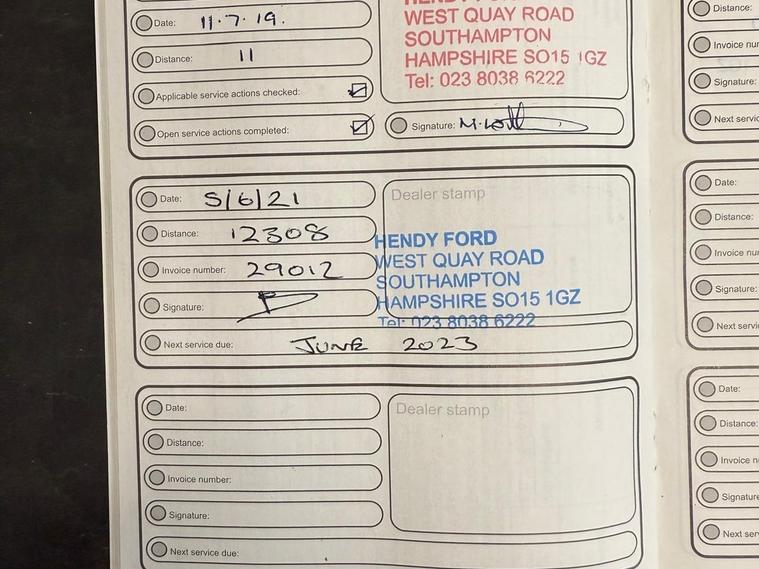 Date: 11.7.19.
Distance: 11
Applicable service actions checked:
Open service actions completed:
WEST QUAY ROAD
SOUTHAMPTON
HAMPSHIRE SO15 1GZ
Tel: 023 8038 6222
Signature:
Date: 5/6/21
Distance: 12308
Invoice number: 29012
Signature:
Next service due: JUNE 2023
Dealer stamp
HENDY FORD
WEST QUAY ROAD
SOUTHAMPTON
HAMPSHIRE SO15 1GZ
Tel: 023 8038 6222
Date:
Distance:
Invoice number:
Signature:
Next service due:
Dealer stamp
Distance:
Invoice
Signature:
Next
Date:
Distance:
Invoice
Signature:
Next
Date:
Distance:
Invoice
Signature
Next